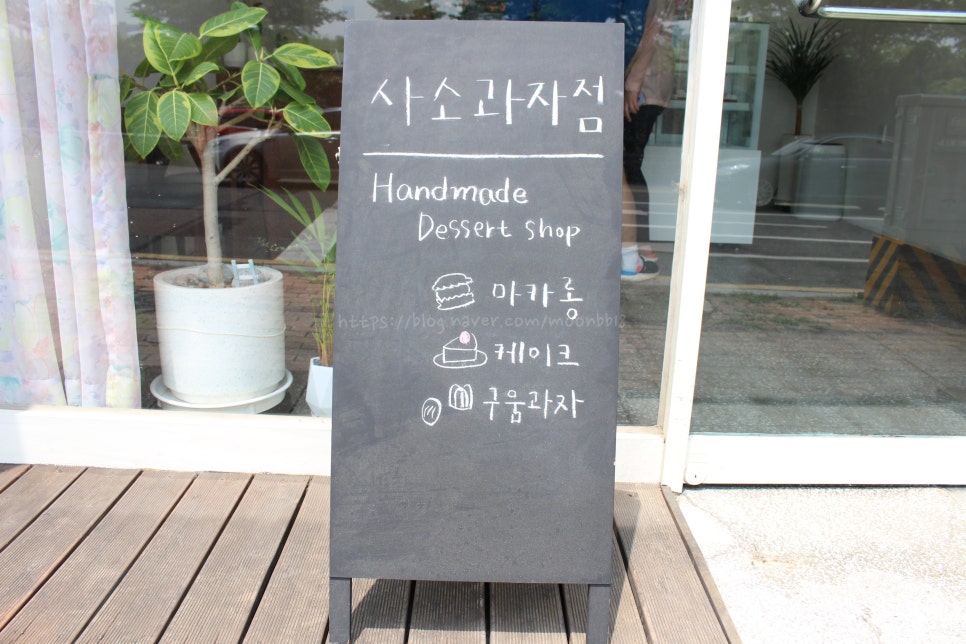 사소과자점
Handmade
Dessert shop
마카롱
https://blog.naver.com/moonbbi
케이크
구움과자